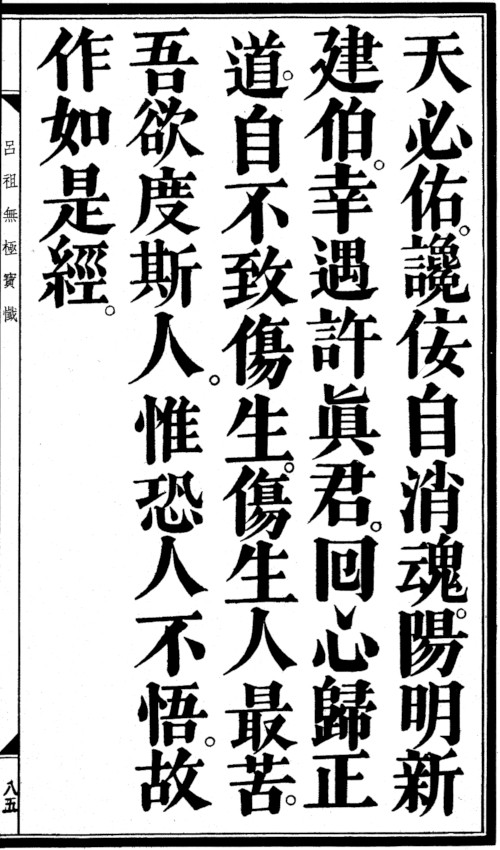 天必佑。讒佞自消魂。陽明新
建伯。幸遇許眞君。回心歸正
道。自不致傷生。傷生人最苦。
吾欲度斯人。惟恐人不悟。故
作如是經。
呂祖無極寶懺
八五